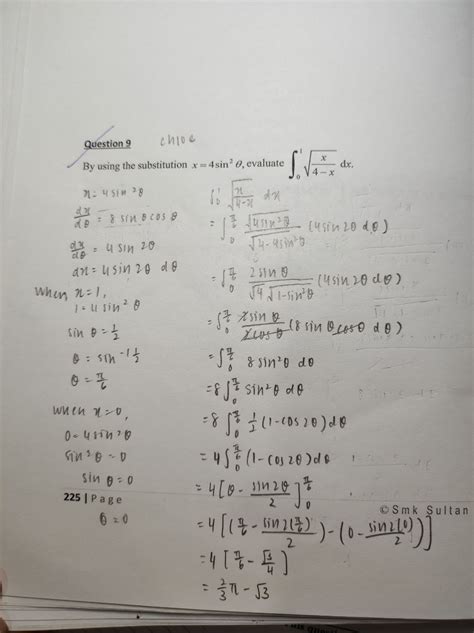 Question 9 chloe
By using the substitution x = 4 sin² θ, evaluate ∫₀¹ √(x/(4−x)) dx.
x = 4 sin²θ
dx/dθ = 8 sin θ cos θ
dx/dθ = 4 sin 2θ
dx = 4 sin 2θ dθ
when x = 1,
1 = 4 sin²θ
sin θ = 1/2
θ = sin⁻¹ 1/2
θ = π/6
when x = 0,
0 = 4 sin²θ
sin²θ = 0
sin θ = 0
θ = 0
∫₀¹ √(x/(4−x)) dx
= ∫₀^(π/6) √(4sin²θ)/√(4−4sin²θ) (4 sin 2θ dθ)
= ∫₀^(π/6) 2 sin θ/(√4 √(1−sin²θ)) (4 sin 2θ dθ)
= ∫₀^(π/6) 2 sin θ/(2 cos θ) (8 sin θ cos θ dθ)
= ∫₀^(π/6) 8 sin²θ dθ
= 8 ∫₀^(π/6) sin²θ dθ
= 8 ∫₀^(π/6) 1/2 (1−cos 2θ) dθ
= 4 ∫₀^(π/6) (1−cos 2θ) dθ
= 4 [θ − sin 2θ/2]₀^(π/6)
= 4 [(π/6 − sin 2(π/6)/2) − (0 − sin 2(0)/2)]
= 4 [π/6 − √3/4]
= 2/3 π − √3
225 | Page
© Smk Sultan